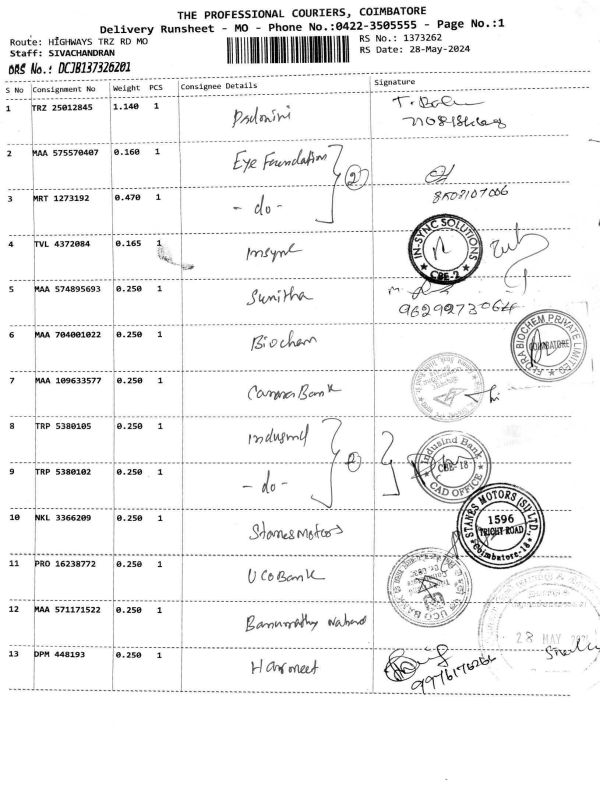 THE PROFESSIONAL COURIERS, COIMBATORE
Delivery Runsheet - MO - Phone No.:0422-3505555 - Page No.:1
Route: HIGHWAYS TRZ RD MO
RS No.: 1373262
Staff: SIVACHANDRAN
RS Date: 28-May-2024
DRS No.: DCJB137326201
S No Consignment No Weight PCS Consignee Details Signature
1 TRZ 25012845 1.140 1
2 MAA 575570407 0.160 1 Eye Foundation 2
3 MRT 1273192 0.470 1 - do -
4 TVL 4372084 0.165 1 Insync IN-SYNC SOLUTIONS CBE-2
5 MAA 574895693 0.250 1 Sunitha
6 MAA 704001022 0.250 1 Biochem FLORA BIOCHEM PRIVATE LIMITED COIMBATORE
7 MAA 109633577 0.250 1 Canara Bank
8 TRP 5380105 0.250 1 Indusind 2 IndusInd Bank CBE-18 CAD OFFICE
9 TRP 5380102 0.250 1 - do -
10 NKL 3366209 0.250 1 Stanes Motors STANES MOTORS (SI) LTD. 1596 TRICHY ROAD Coimbatore-18
11 PRO 16238772 0.250 1 UCO Bank UCO BANK
12 MAA 571171522 0.250 1 28 MAY
13 DPM 448193 0.250 1 Harmeet
9976176266